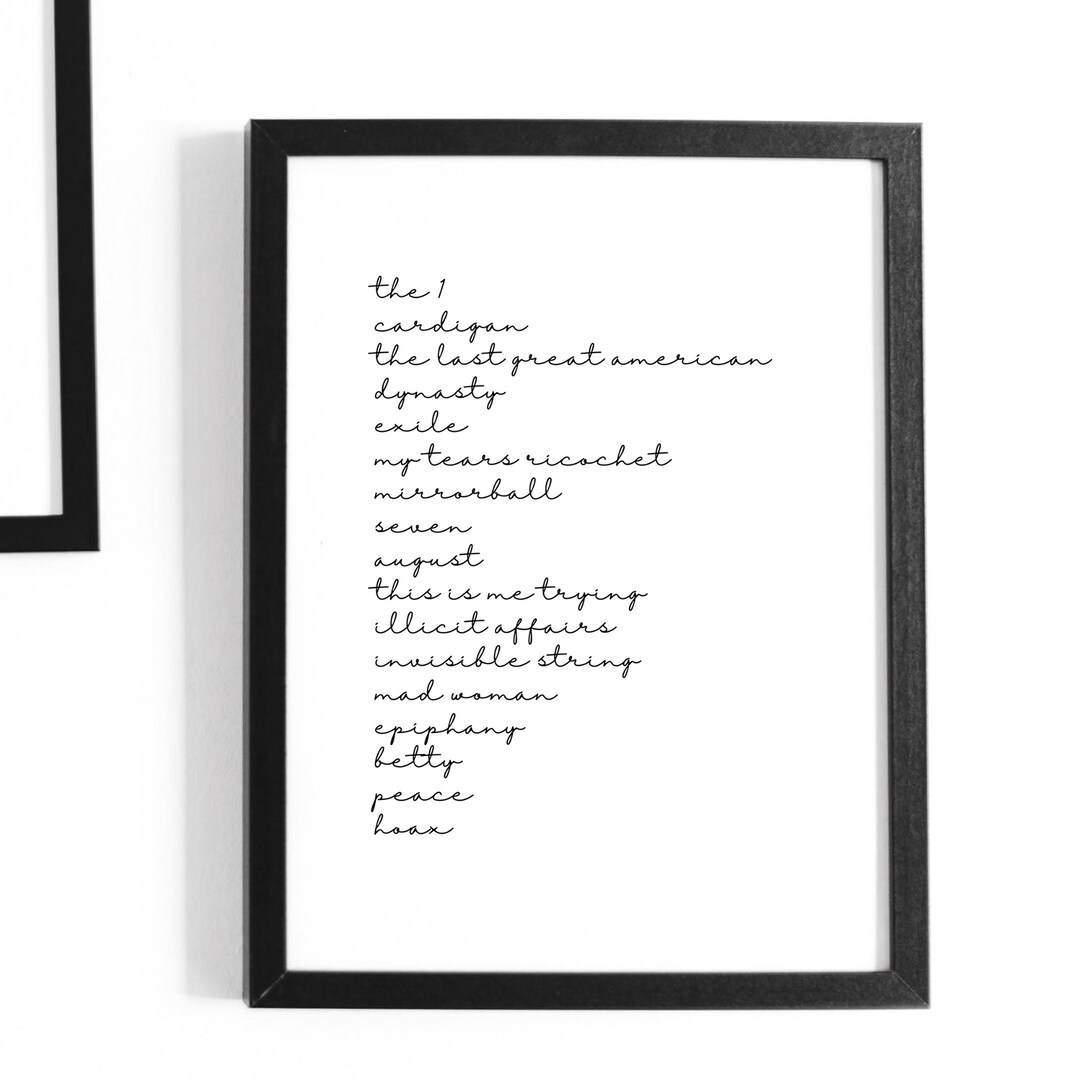 the 1
cardigan
the last great american
dynasty
exile
my tears ricochet
mirrorball
seven
august
this is me trying
illicit affairs
invisible string
mad woman
epiphany
betty
peace
hoax